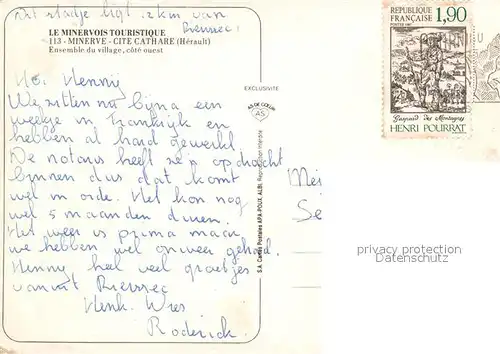 dit stadje ligt 12km van
Rieussec!
LE MINERVOIS TOURISTIQUE
113 - MINERVE - CITE CATHARE (Hérault)
Ensemble du village, côté ouest
EXCLUSIVITE
AS DE CŒUR
AS
RÉPUBLIQUE
FRANÇAISE 1,90
Gaspard des Montagnes
HENRI POURRAT
Ho! Henny
Wij zitten na bijna een
weekje in Frankrijk en
hebben al hard gewerkt
De notaris heeft opdracht
binnen dus dat komt
wel in orde. Het kon nog
wel 5 maanden duren.
Het weer is prima maar
we hebben wel onweer gehad.
Henny heel veel groetjes
vanuit Rieussec
Henk. Wies
Roderick.
S.A. Cartes Postales APA-POUX, ALBI, Reproduction Interdite
Mei
Se
privacy protection
Datenschutz